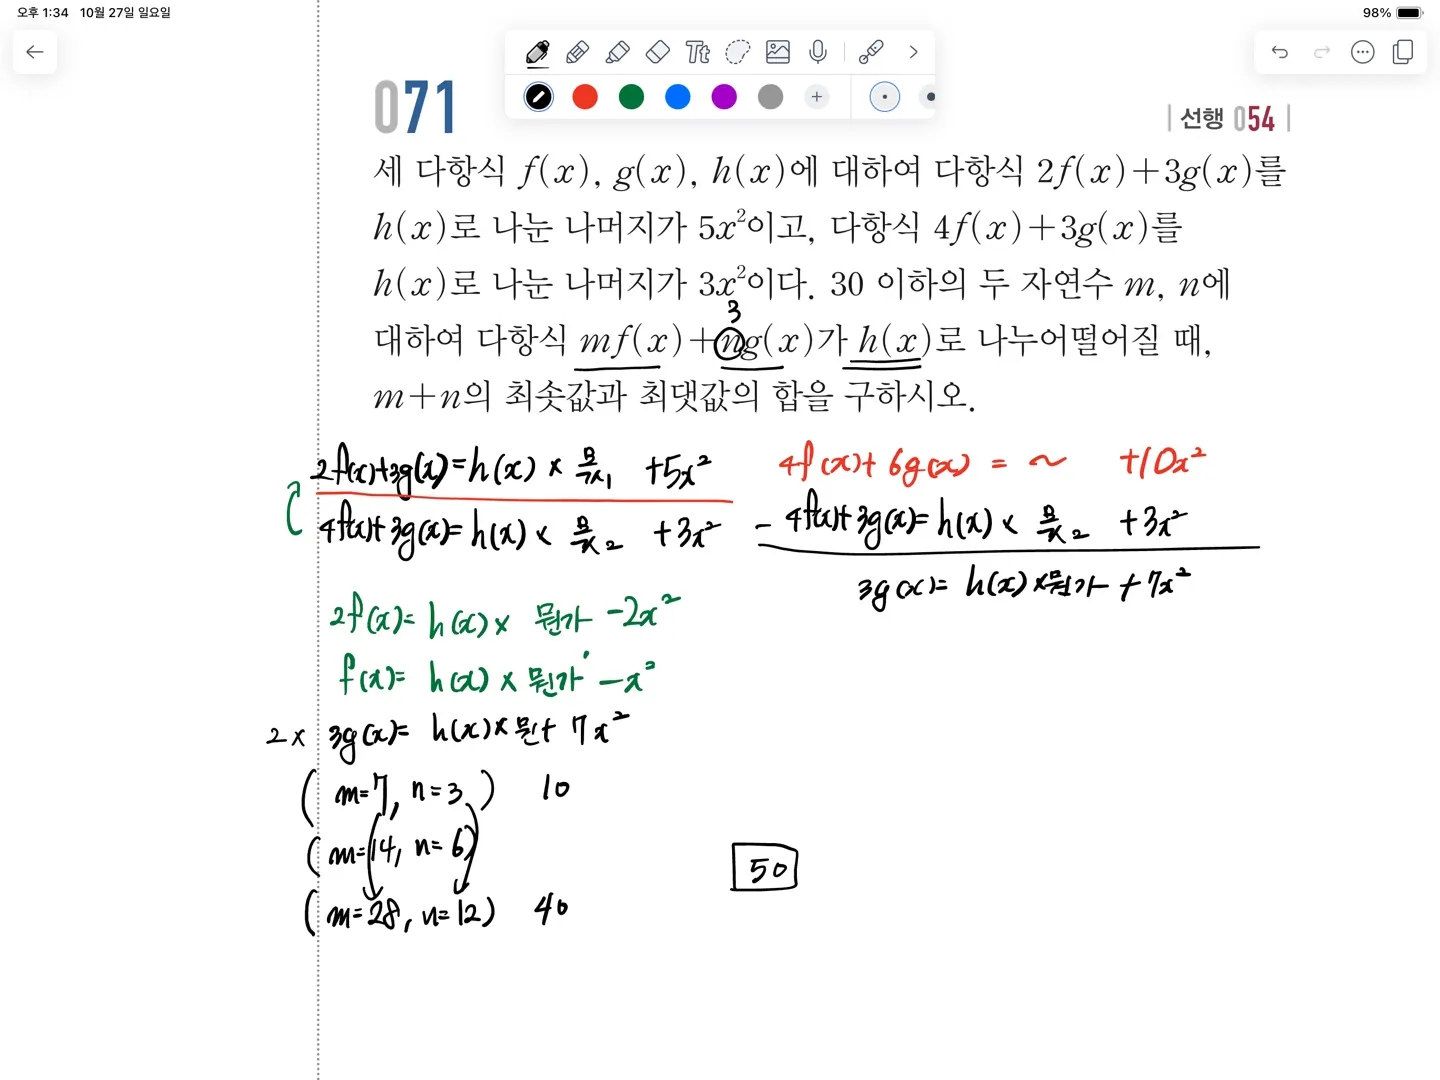 오후 1:34 10월 27일 일요일
98%
Tt
071
선행 054
세 다항식 f(x), g(x), h(x)에 대하여 다항식 2f(x)+3g(x)를
h(x)로 나눈 나머지가 5x²이고, 다항식 4f(x)+3g(x)를
h(x)로 나눈 나머지가 3x²이다. 30 이하의 두 자연수 m, n에
3
대하여 다항식 mf(x)+ng(x)가 h(x)로 나누어떨어질 때,
m+n의 최솟값과 최댓값의 합을 구하시오.
2f(x)+3g(x)=h(x)× 몫1 +5x²
4f(x)+3g(x)=h(x)× 몫2 +3x²
4f(x)+6g(x) = ~ +10x²
- 4f(x)+3g(x)=h(x)× 몫2 +3x²
3g(x)= h(x)×뭔가 +7x²
2f(x)= h(x)× 뭔가 -2x²
f(x)= h(x)× 뭔가' -x²
2× 3g(x)= h(x)×뭔+ 7x²
(m=7, n=3) 10
(m=14, n=6)
(m=28, n=12) 40
50